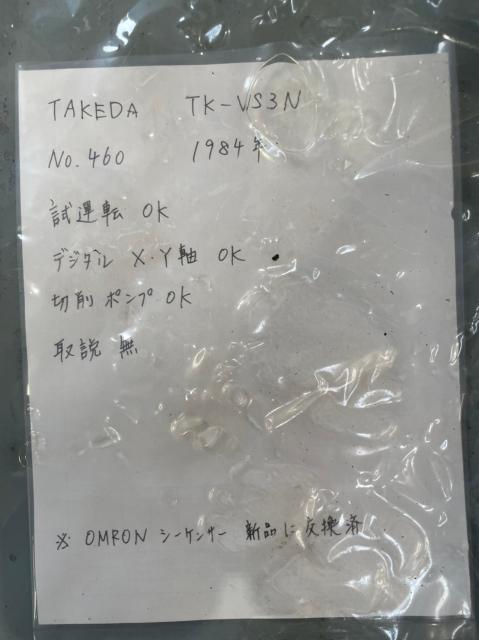 TAKEDA TK-VS3N
No.460 1984年
試運転 OK
デジタル X・Y軸 OK
切削ポンプ OK
取説 無
※ OMRON シーケンサー 新品に交換済